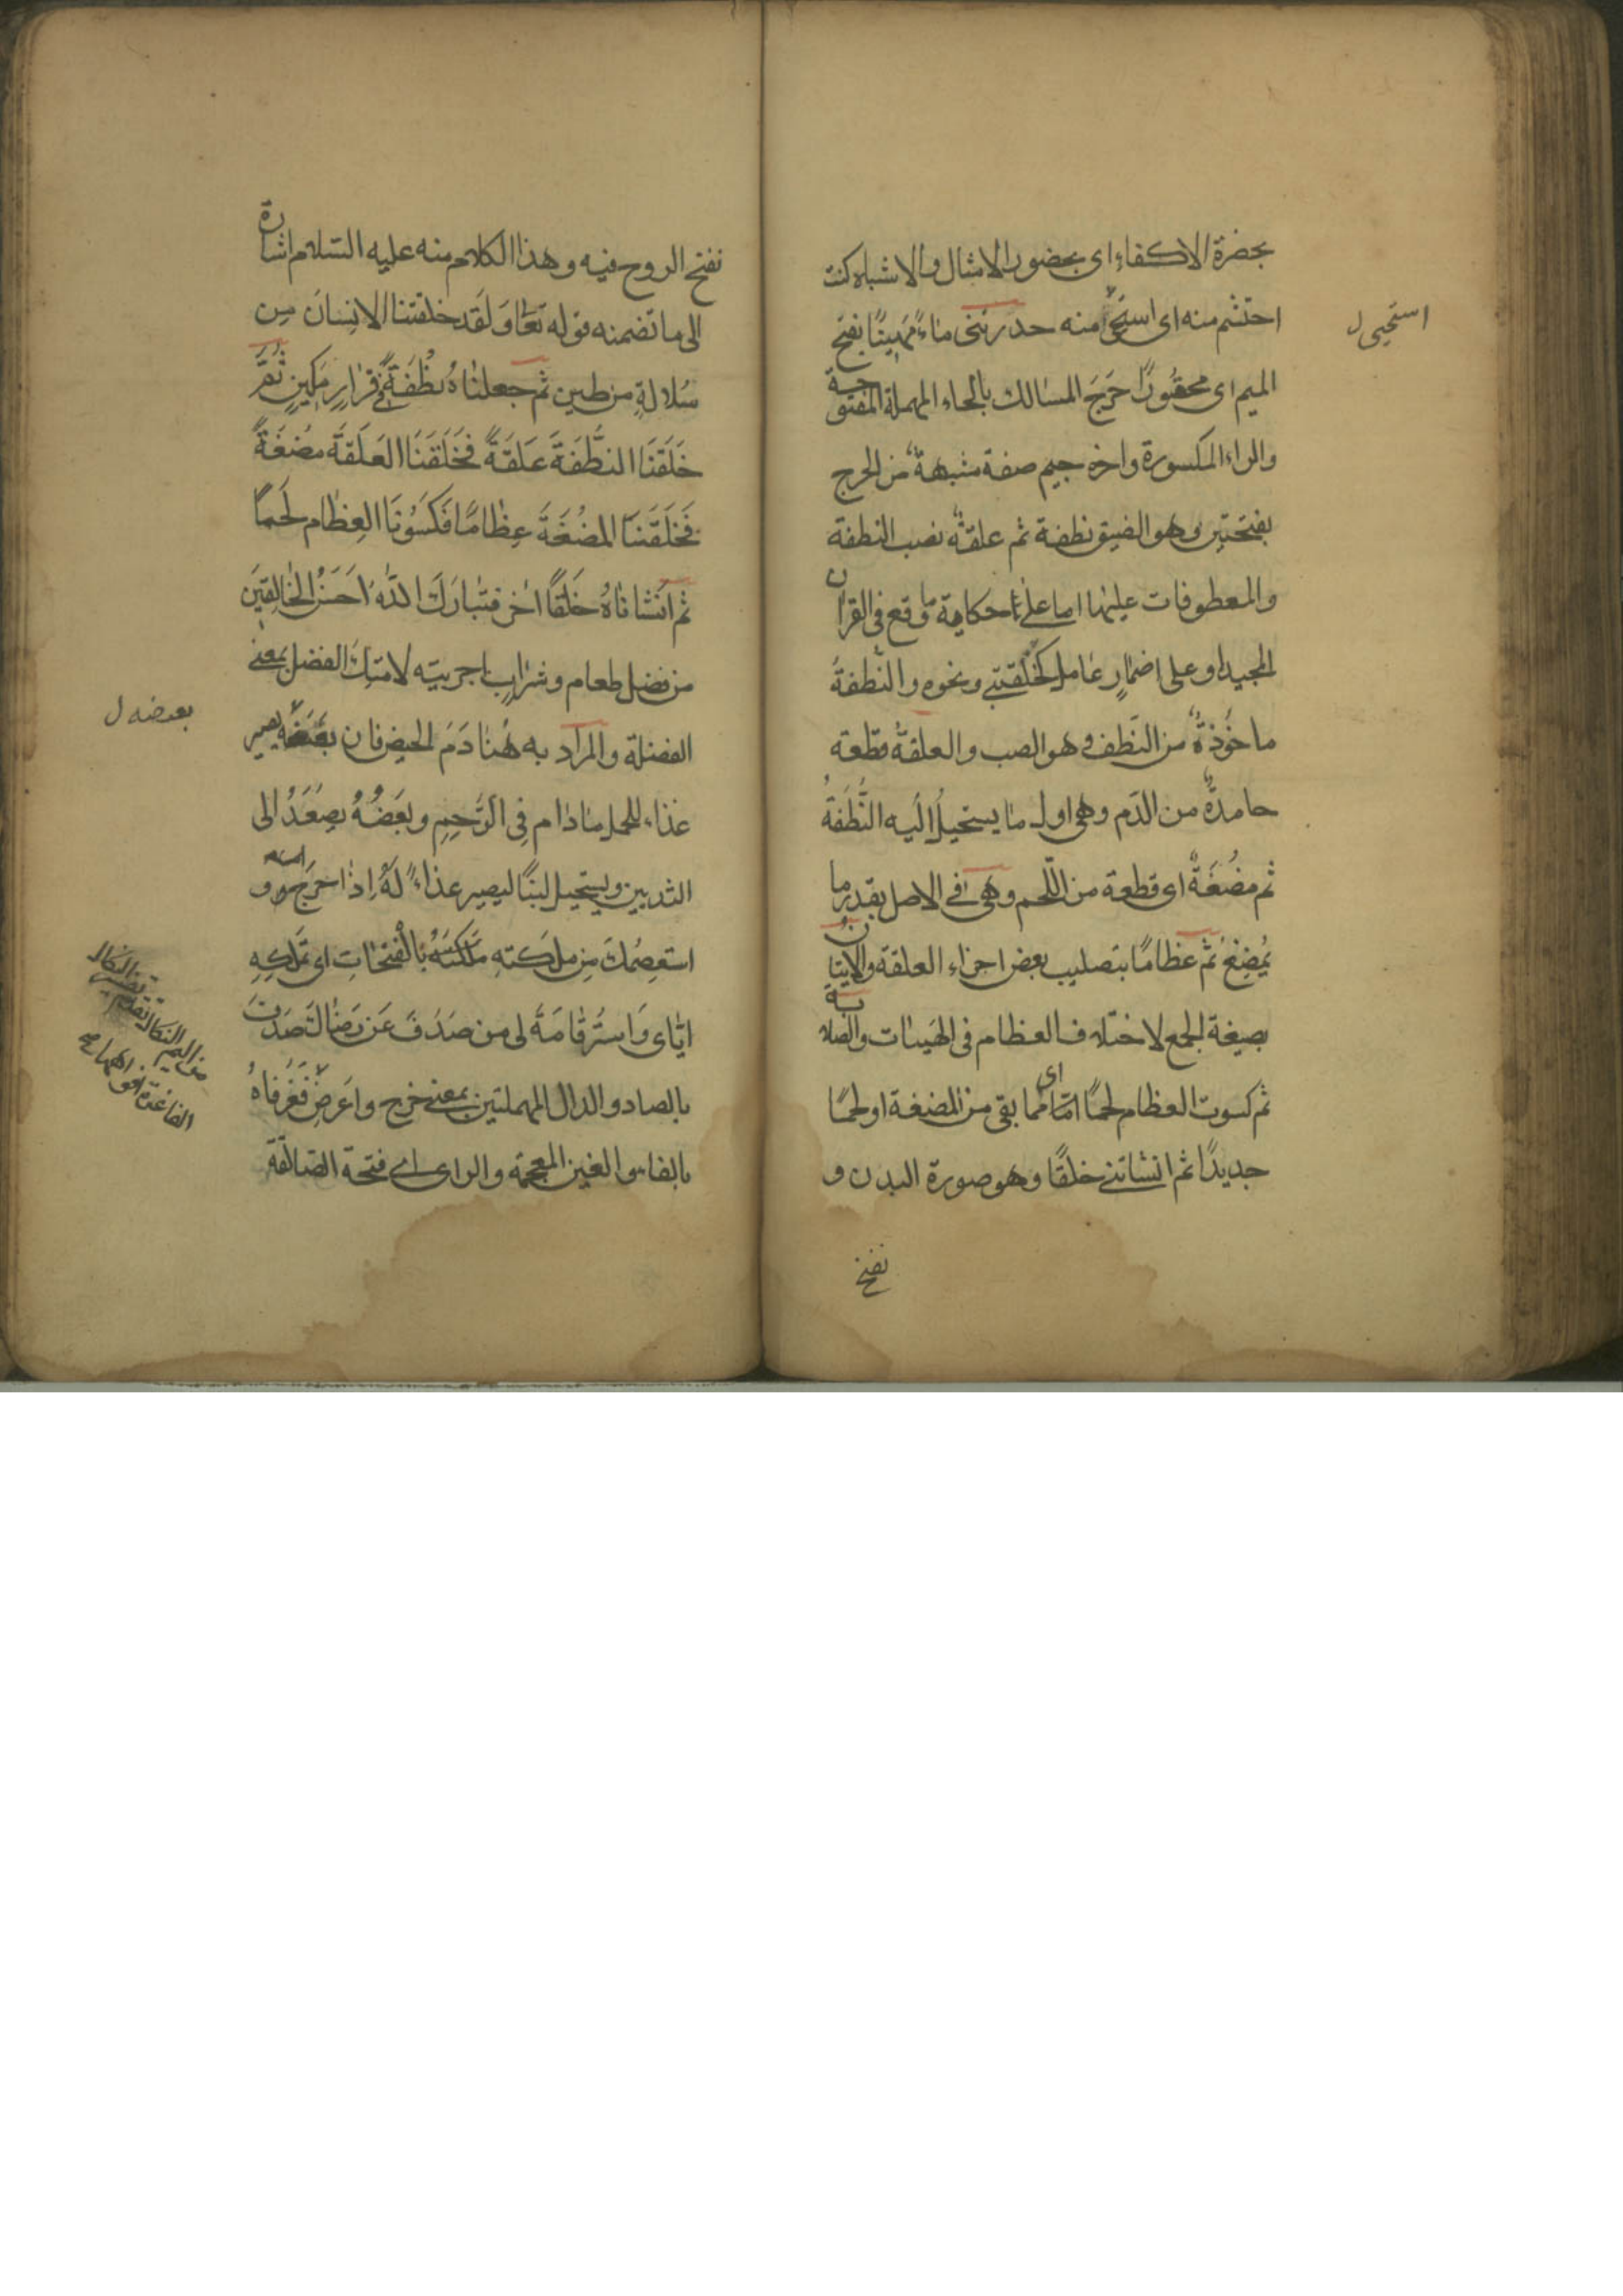 بحضرة الاكفاء اى بحضور الامثال والاشباه كنت
احتشم منه اى استحى منه حدرتنى ماءً مَهِينًا بفتح
استحيى ل
الميم اى محقورًا حَرَجَ المسالك بالحاء المهملة المفتوحة
والراء المكسورة واخره جيم صفة مشبهة من الحرج
بفتحتين وهو الضيق نطفة ثم علقةً نصب النطفة
والمعطوفات عليها اما على حكاية ما وقع فى القران
المجيد او على اضمار عامل كخلقتنى ونحوه والنّطفةُ
ماخوذةٌ من النّطف وهو الصب والعلقةُ قطعة
جامدةٌ من الدّم وهى اول ما يستحيلُ اليه النُّطفَةُ
ثم مُضغَةً اى قطعة من اللّحم وهى فى الاصل بقدر ما
يُمضَغُ ثم عظامًا بتصليب بعض اجزاء العلقة والاتيان
بصيغة الجمع لاختلاف العظام فى الهيئات والصلابة
ثم كسوت العظام لحمًا اى امّا مما بقى من المضغة او لحمًا
جديدًا ثم انشاتنى خلقًا وهو صورة البدن و
نفخ
نفخ الروح فيه وهذا الكلام منه عليه السّلام اشارة
الى ما تضمنه قوله تعالى وَلَقَد خلقنا الانسانَ مِن
سُلالةٍ من طين ثم جعلناهُ نُطْفَةً فى قرارٍ مَكِينٍ ثُمَّ
خَلَقنَا النطُّفَةَ عَلقَةً فَخَلَقنَا العَلَقَةَ مُضغَةً
فَخَلَقنَا المُضْغَةَ عِظامًا فَكَسَوْنَا العِظام لَحمًا
ثم اَنشاناهُ خَلقًا اخر فتبارَكَ اللهُ اَحسَنُ الخَالِقِينَ
من فضل طعام وشرابٍ اجريته لامتك الفضل بمعنى
الفضلة والمراد به هُنا دَمَ الحيض فان بعضه يصير
بعضه ل
غذاء للحمل مادام فى الرَّحِمِ وبَعضُهُ يصعَدُ الى
الثديين ويستحيل لبنًا ليصير غذاءً لَهُ اِذا خرج و
استعصمُك مِن ملكته مَلَكَتهُ بالفتحاتِ اى تملّكِهِ
اياى وَاستر قامَة لى من صَدَفَ عَن رضا لتَصَدفَ
بالصاد والدال المهملتين بمعنى خرج واَعرَض فَغَرفاهُ
بالفاء والغين المعجمة والراى اى فتحة